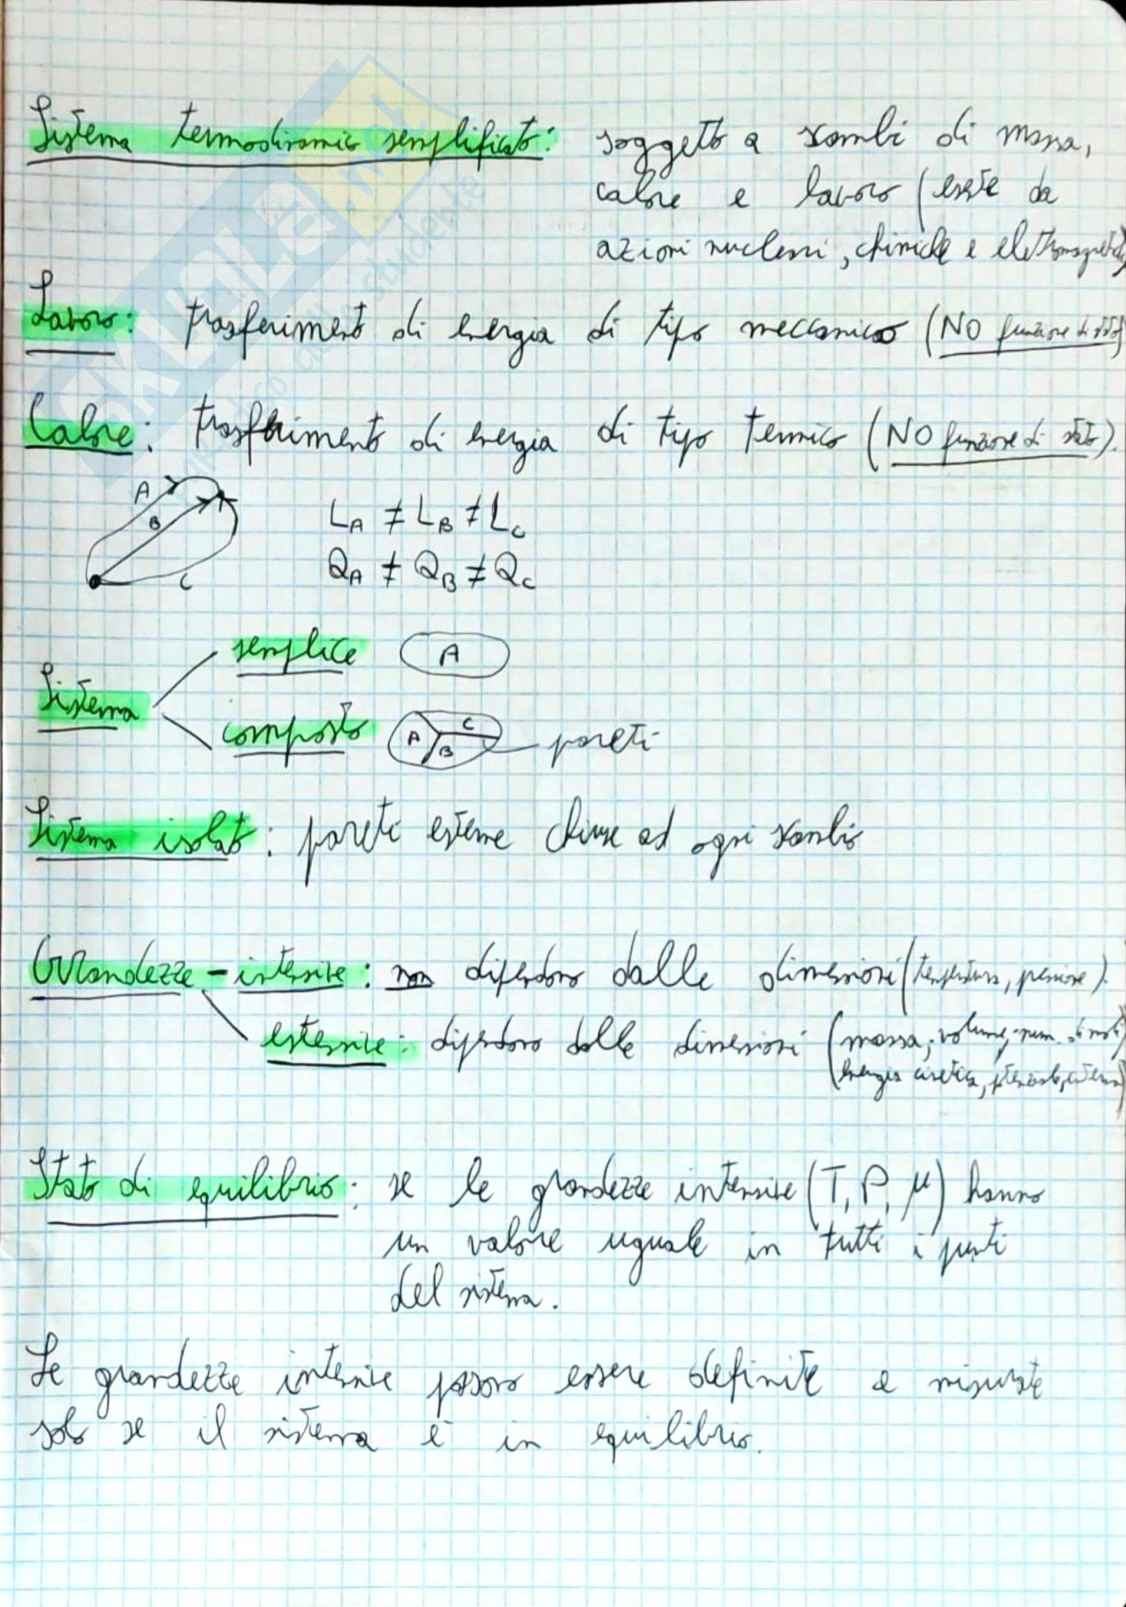 Sistema termodinamico semplificato: soggetto a scambi di massa,
calore e lavoro (esente da
azioni nucleari, chimiche e elettromagnetiche)
Lavoro: trasferimento di energia di tipo meccanico (NO funzione di stato)
Calore: trasferimento di energia di tipo termico (NO funzione di stato).
A
B
C
LA ≠ LB ≠ LC
QA ≠ QB ≠ QC
Sistema
semplice A
composto A B C pareti
Sistema isolato: pareti esterne chiuse ad ogni scambio
Grandezze - intensive: non dipendono dalle dimensioni (temperatura, pressione).
estensive: dipendono dalle dimensioni (massa, volume, num. di moli
energia cinetica, potenziale, interna)
Stato di equilibrio: se le grandezze intensive (T, P, μ) hanno
un valore uguale in tutti i punti
del sistema.
Le grandezze intensive possono essere definite e misurate
solo se il sistema è in equilibrio.
SKUOLA.net